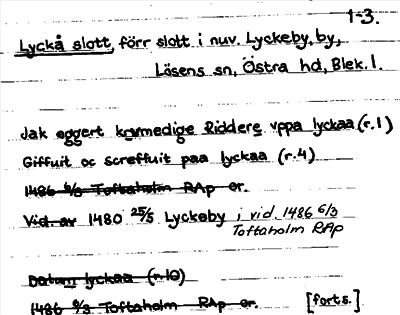 1-3.
Lyckå slott, förr slott i nuv. Lyckeby, by,
Lösens sn, Östra hd, Blek. l.
Jak eggert krvmedige Riddere vppa lyckaa (r.1)
Giffuit oc screffuit paa lyckaa (r.4)
1486 6/3 Toftaholm RAp or.
Vid. av 1480 25/5 Lyckeby i vid. 1486 6/3
Toftaholm RAp
Datum lyckaa (r.10)
1486 6/3 Toftaholm RAp or. [forts.]